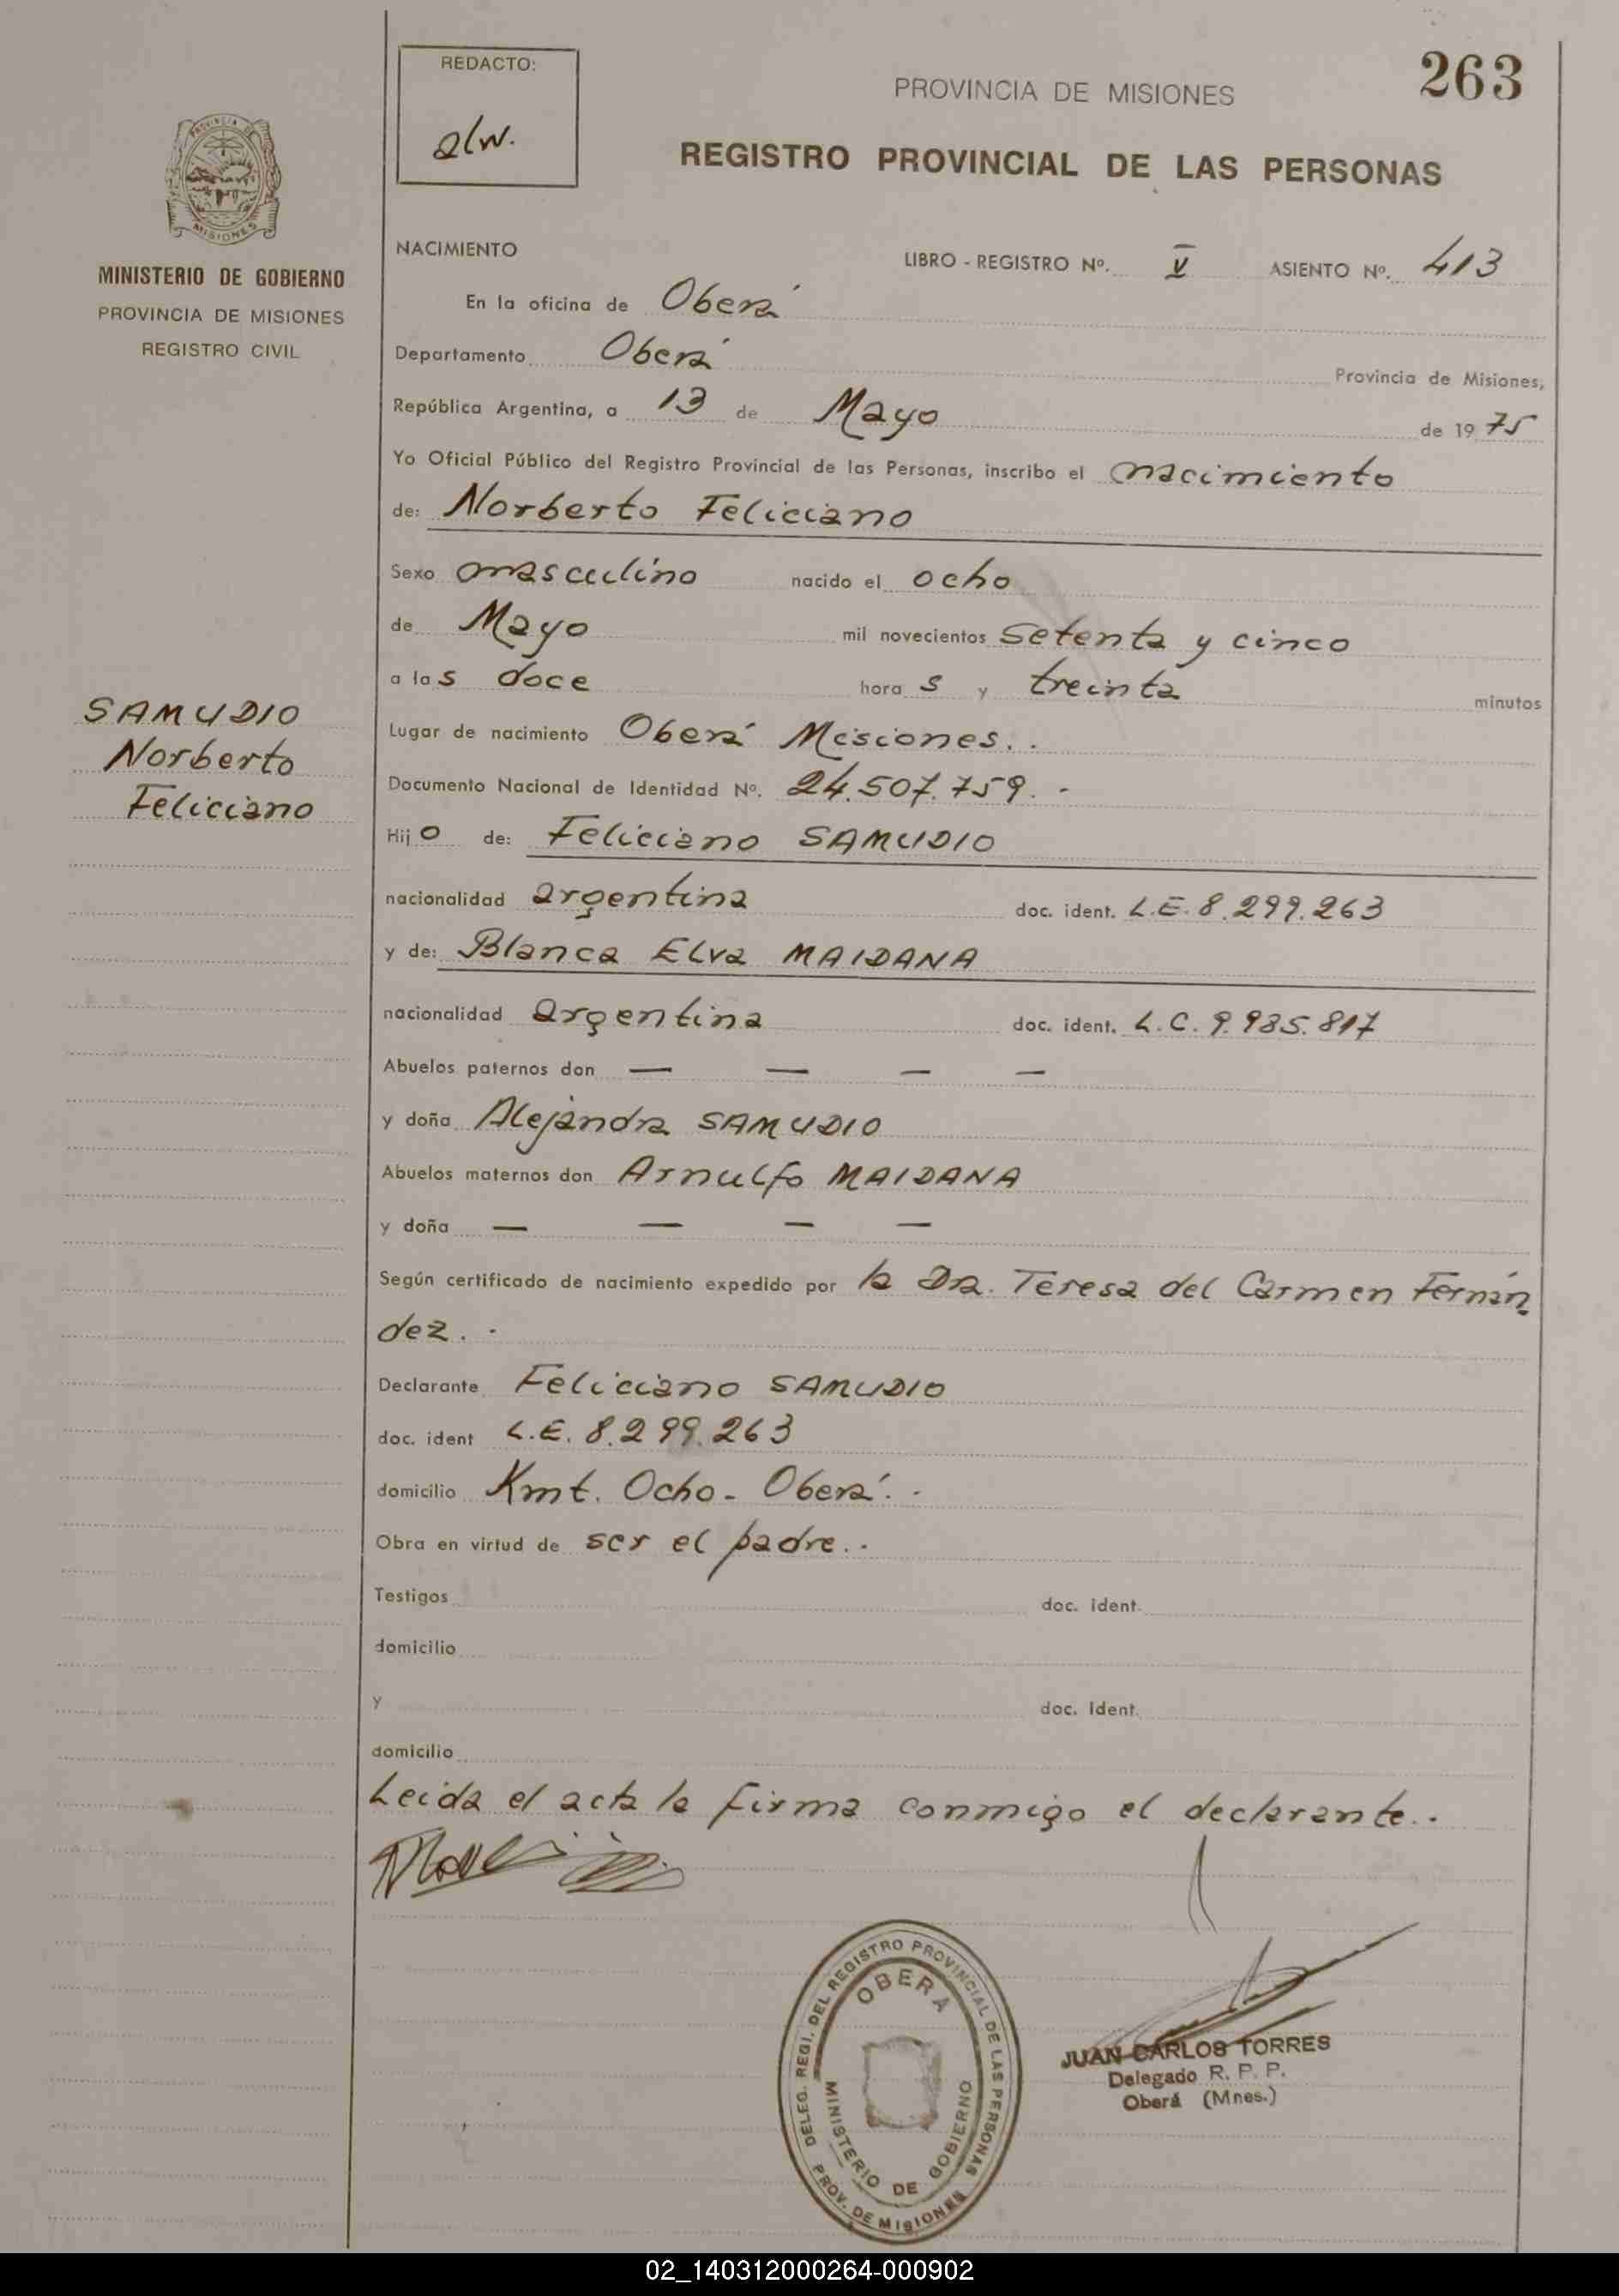 REDACTO:
alw.
PROVINCIA DE MISIONES
263
REGISTRO PROVINCIAL DE LAS PERSONAS
PROVINCIA DE
MISIONES
MINISTERIO DE GOBIERNO
PROVINCIA DE MISIONES
REGISTRO CIVIL
NACIMIENTO LIBRO - REGISTRO Nº. V ASIENTO Nº. 413
En la oficina de Oberá
Departamento Oberá Provincia de Misiones,
República Argentina, a 13 de Mayo de 19 75
Yo Oficial Público del Registro Provincial de las Personas, inscribo el nacimiento
de: Norberto Feliciano
Sexo masculino nacido el ocho
de Mayo mil novecientos setenta y cinco
a las doce horas y treinta minutos
SAMUDIO
Norberto
Feliciano
Lugar de nacimiento Oberá Misiones. .
Documento Nacional de Identidad Nº. 24.507.759. -
Hijo de: Feliciano SAMUDIO
nacionalidad argentina doc. ident. L.E. 8.299.263
y de: Blanca Elva MAIDANA
nacionalidad argentina doc. ident. L.C. 9.935.817
Abuelos paternos don — — — —
y doña Alejandra SAMUDIO
Abuelos maternos don Arnulfo MAIDANA
y doña — — — —
Según certificado de nacimiento expedido por la Dra. Teresa del Carmen Fernán
dez. .
Declarante Feliciano SAMUDIO
doc. ident L.E. 8.299.263
domicilio Kmt. Ocho - Oberá. .
Obra en virtud de ser el padre. .
Testigos doc. ident.
domicilio
y doc. ident.
domicilio
Leida el acta la firma conmigo el declarante. .
DELEG. REGI. DEL REGISTRO PROVINCIAL DE LAS PERSONAS
OBERA
MINISTERIO DE GOBIERNO
PROV. DE MISIONES
JUAN CARLOS TORRES
Delegado R. P. P.
Oberá (Mnes.)
02_140312000264-000902